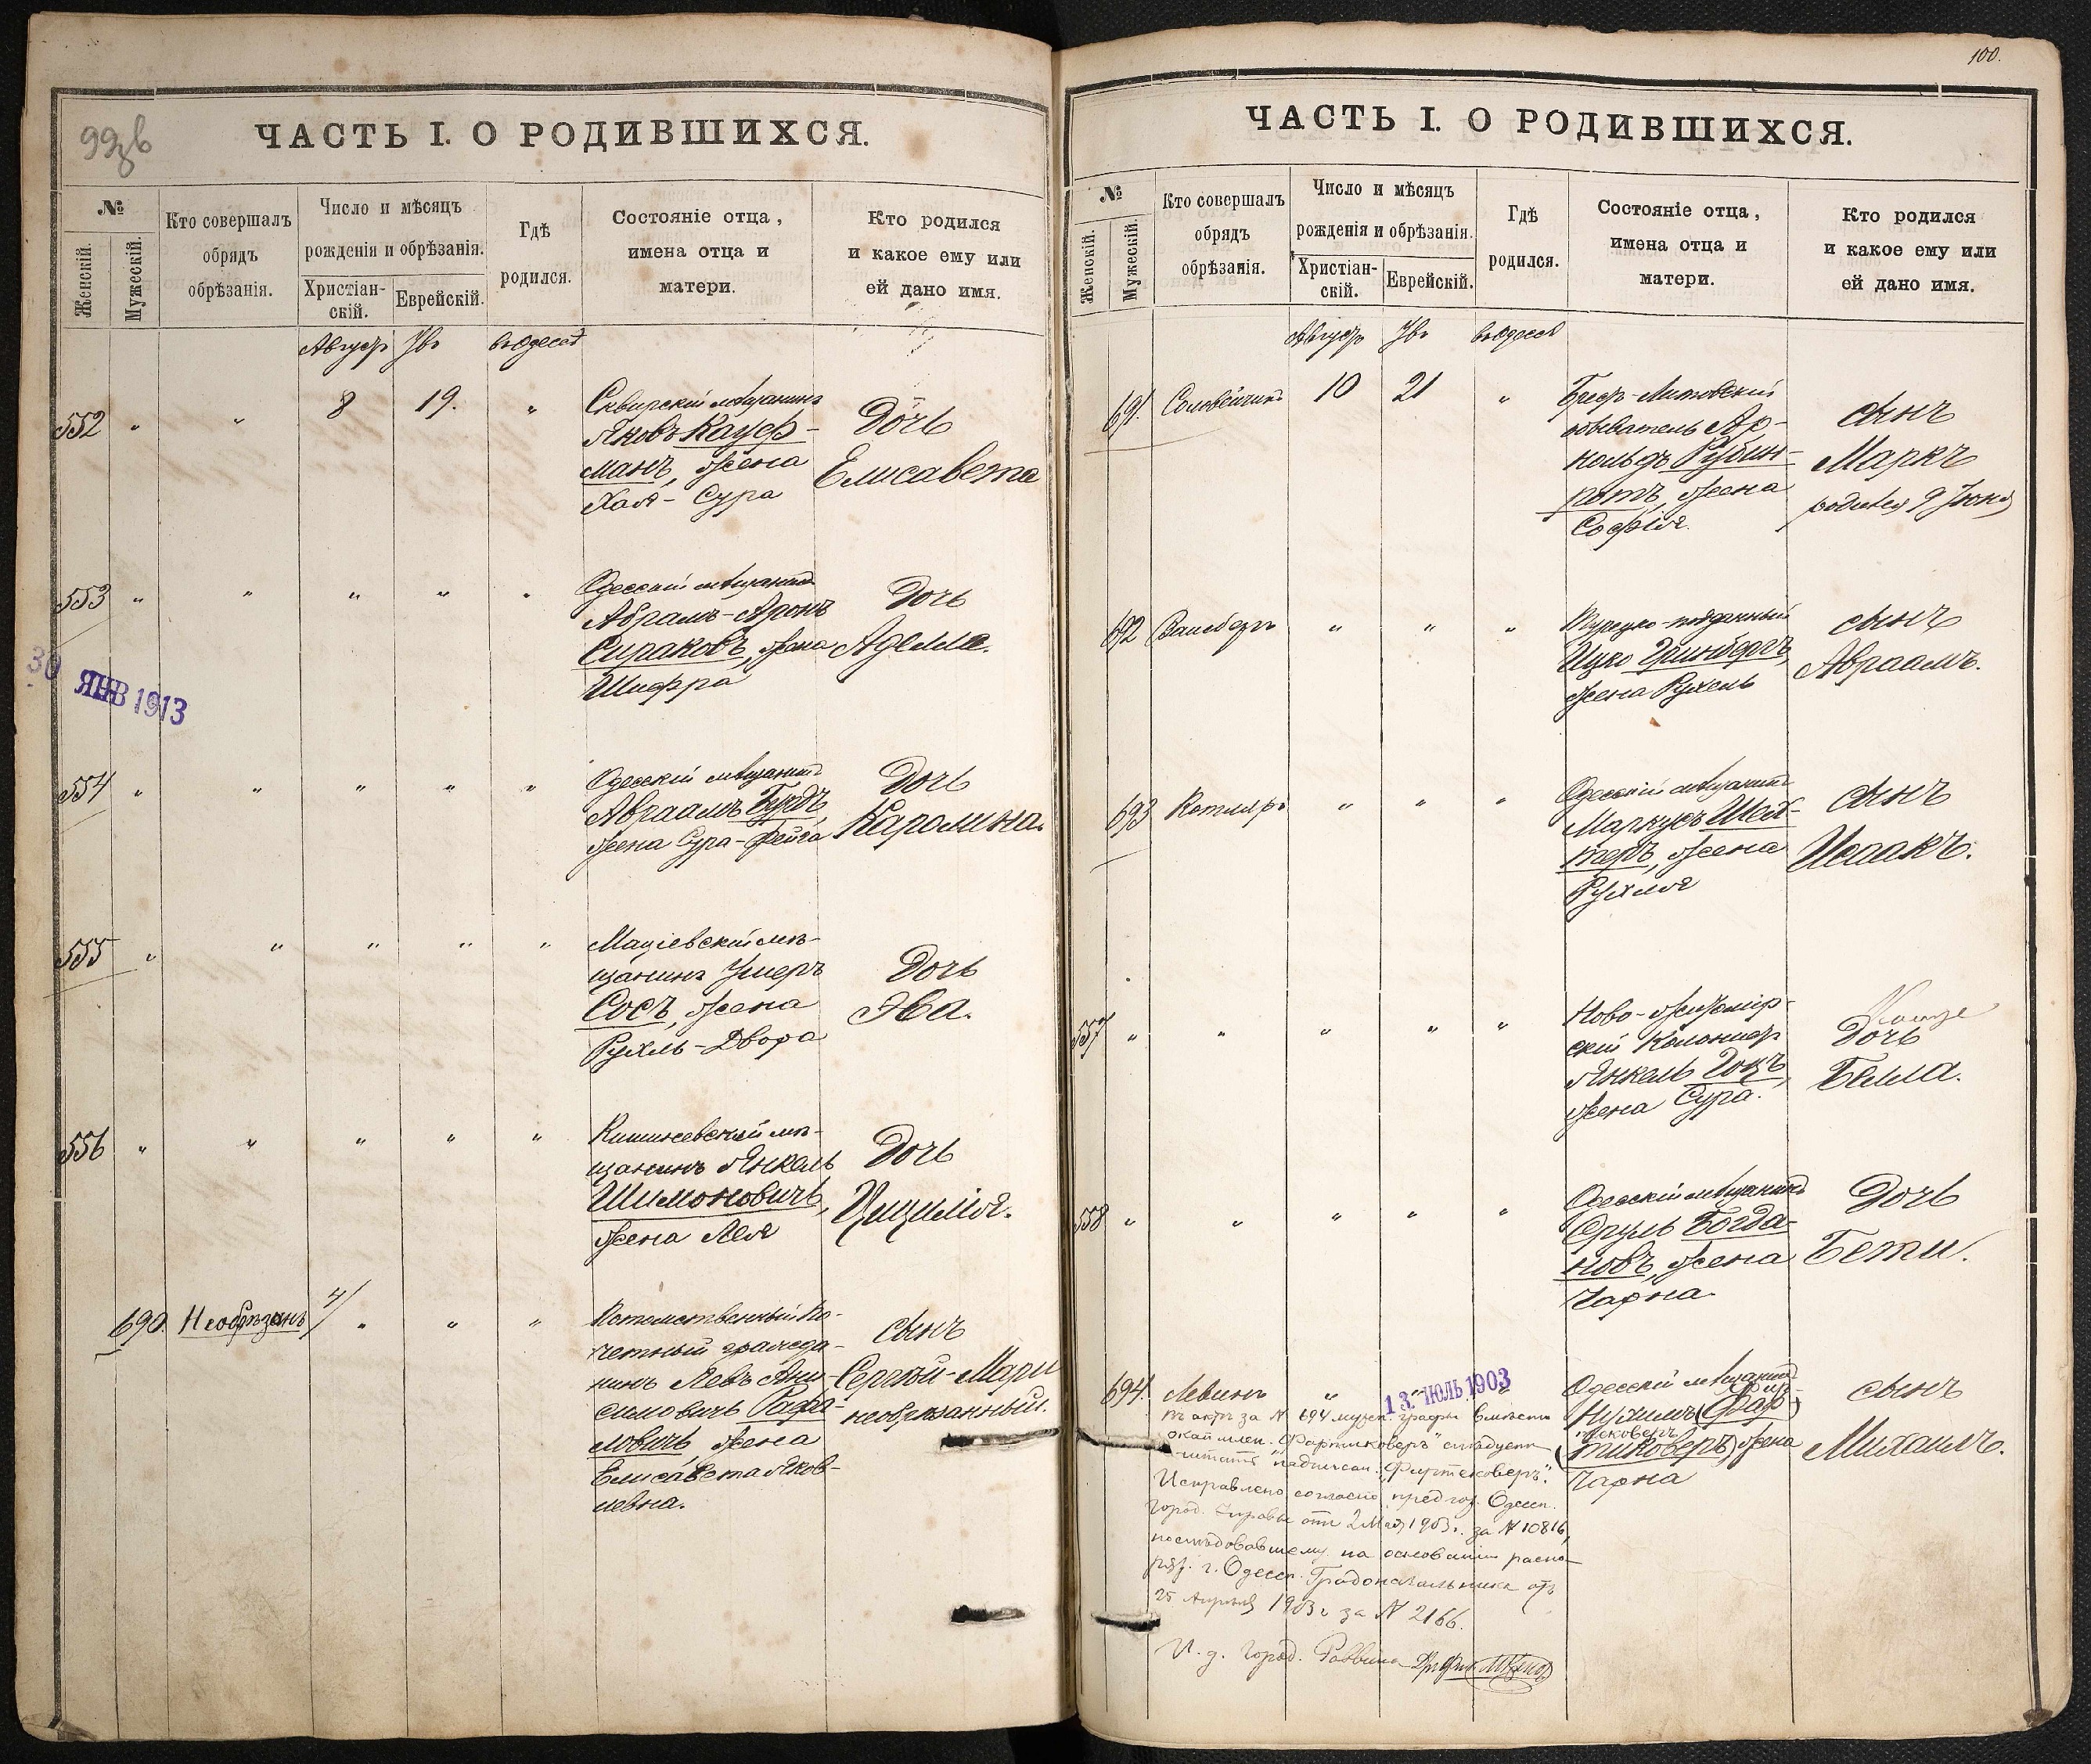 99зв
ЧАСТЬ I. О РОДИВШИХСЯ.
№
Женскій.
Мужескій.
Кто совершалъ
обрядъ
обрѣзанія.
Число и мѣсяцъ
рожденія и обрѣзанія.
Христіан-
скій.
Еврейскій.
Гдѣ
родился.
Состояніе отца,
имена отца и
матери.
Кто родился
и какое ему или
ей дано имя.
Августъ Увъ въ Одессѣ
552 " " 8 19. "
Сквирскій мѣщанинъ
Яковъ Кауф-
манъ, жена
Хая-Сура
Дочь
Елисавета
553 " " " " "
Одесскій мѣщанинъ
Абрамъ-Аронъ
Сираковъ, жена
Шифра
Дочь
Аделла.
30 ЯНВ 1913
554 " " " " "
Одесскій мѣщанинъ
Авраамъ
жена Сура-Фейга
Дочь
Каролина.
555 " " " " "
Маціевскій мѣ-
щанинъ Умеръ
Сосъ, жена
Рухль-Двора
Дочь
Эва.
556 " " " " "
Кишиневскій мѣ-
щанинъ Янкель
Шимоновичъ,
жена Лея
Дочь
Цицилія.
690. Необрѣзанъ 4/ " " "
Потомственный По-
четный гражда-
нинъ Левъ Ани-
симовичъ Рафа-
ловичъ, жена
Елисавета Яков-
левна.
сынъ
Сергѣй-Мари
необрѣзанный.
100.
ЧАСТЬ I. О РОДИВШИХСЯ.
№
Женскій.
Мужескій.
Кто совершалъ
обрядъ
обрѣзанія.
Число и мѣсяцъ
рожденія и обрѣзанія.
Христіан-
скій.
Еврейскій.
Гдѣ
родился.
Состояніе отца,
имена отца и
матери.
Кто родился
и какое ему или
ей дано имя.
Августъ Увъ въ Одессѣ
691. Соловейчикъ 10 21 "
Брестъ-Литовскій
обыватель Ар-
нольдъ Рубин-
ротъ, жена
Софія.
сынъ
Маркъ
родился 9 Іюня
692 Вансбергъ " " "
Турецко-подданный
Ицко Гринбергъ,
жена Рухель
сынъ
Авраамъ.
693 Котляръ " " "
Одесскій мѣщанинъ
Маркусъ Шех-
теръ, жена
Рухля
сынъ
Исаакъ.
557 " " " " "
Ново-Житомір-
скій Колонистъ
Янкель
жена Сура.
Дочь
Белла.
558 " " " " "
Одесскій мѣщанинъ
Сруль Богда-
новъ, жена
Чарна
Дочь
Бети.
694. Левинъ " " "
13. ІЮЛЬ 1903
Одесскій мѣщанинъ
Нухимъ (Фар-
тиковеръ) жена
Чарна
сынъ
Михаилъ.
Въ актѣ за № 694 мужск. графы вмѣсто
фамилеи. "Фартиковеръ" слѣдуетъ
читать надписан. "Фиртековеръ".
Исправлено согласно предлож. Одесск.
Город. Управы отъ 2 Мая 1903 г. за № 10816,
послѣдовавшему на основаніи распо-
ряж. г. Одесск. Градоначальника отъ
25 Апрѣля 1903 г. за № 2166.
И. д. Город. Раввина